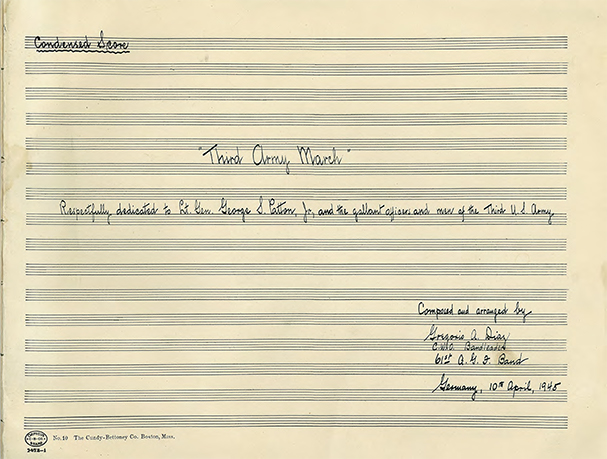 Condensed Score
"Third Army March"
Respectfully dedicated to Lt. Gen. George S. Patton, Jr, and the gallant officers and men of the Third U. S. Army
Composed and arranged by
Gregorio A. Diaz
C.W.O. Bandleader
61st A. G. F. Band
Germany, 10th April, 1945
No. 10 The Cundy-Bettoney Co. Boston, Mass.
3078-1